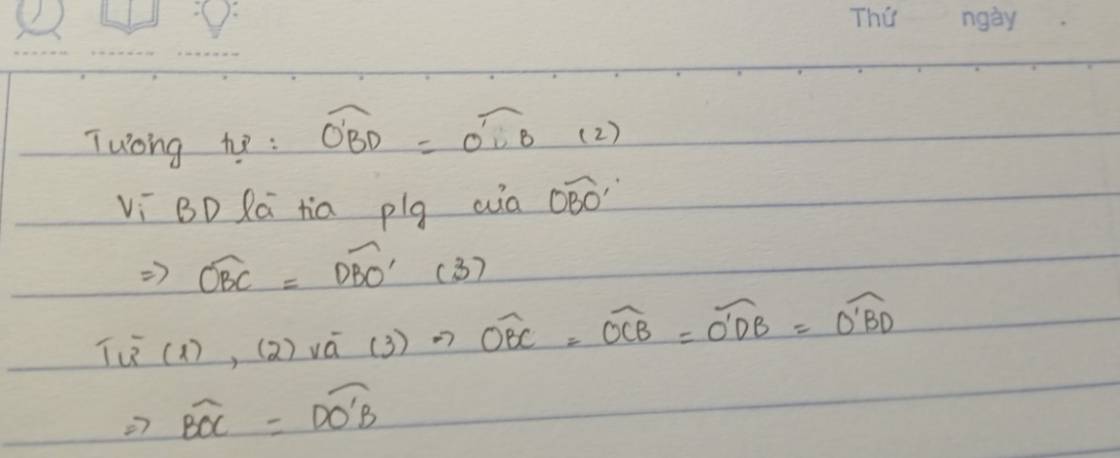 Thứ ngày .
Tương tự : \widehat{O'BD} = (2)
Vì BD là tia p/g của \widehat{OBO'}
=> \widehat{OBC} = \widehat{DBO'} (3)
Từ (1) , (2) và (3) => \widehat{OBC} = \widehat{OCB} = \widehat{O'DB} = \widehat{O'BD}
=> \widehat{BOC} = \widehat{DO'B}